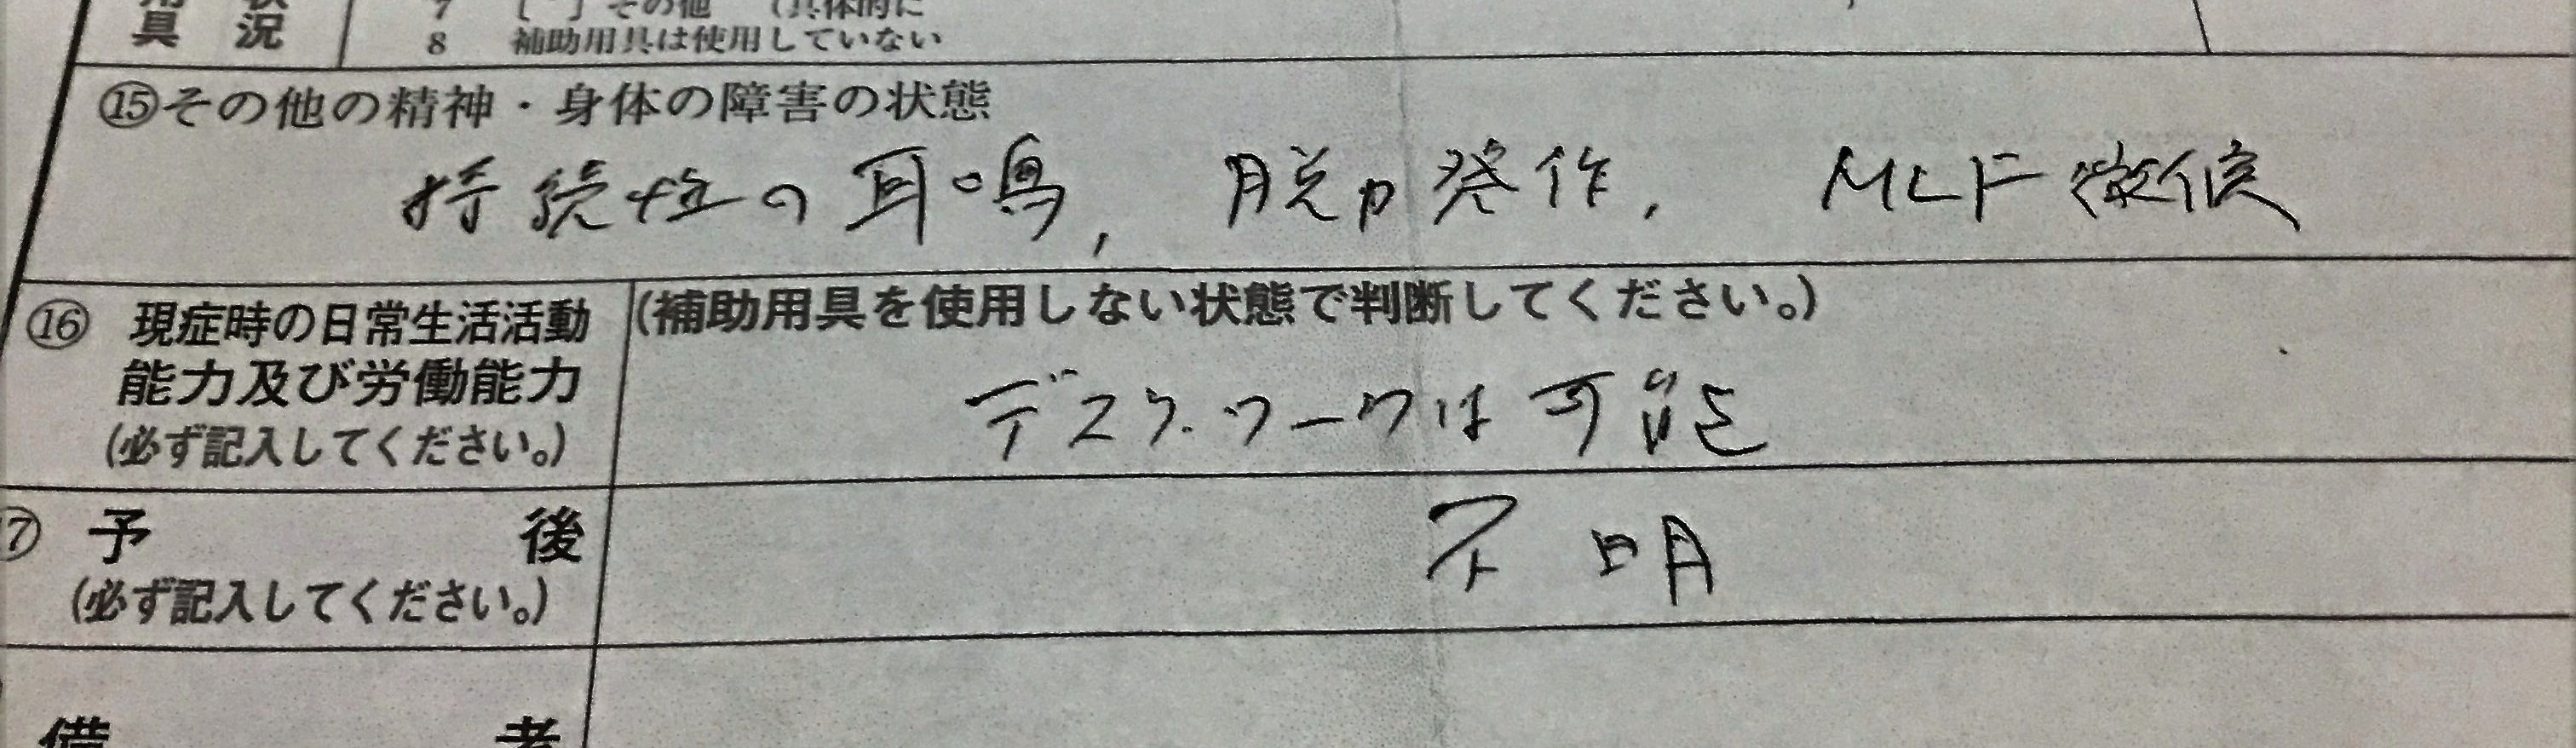 用具 状況
7 〔 〕その他 (具体的に
8 補助用具は使用していない
⑮その他の精神・身体の障害の状態
持続性の耳鳴, 脱力発作, MLF徴候
⑯ 現症時の日常生活活動
能力及び労働能力
(必ず記入してください。)
(補助用具を使用しない状態で判断してください。)
デスクワークは可能
⑰ 予後
(必ず記入してください。)
不明
備考